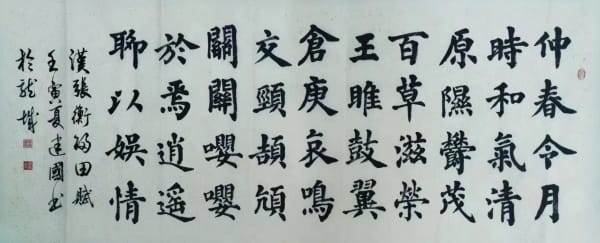 仲春令月
時和氣清
原隰鬱茂
百草滋榮
王雎鼓翼
倉庚哀鳴
交頸頡頏
關關嚶嚶
於焉逍遥
聊以娱情
漢張衡歸田賦
壬寅夏建國书
於龍城